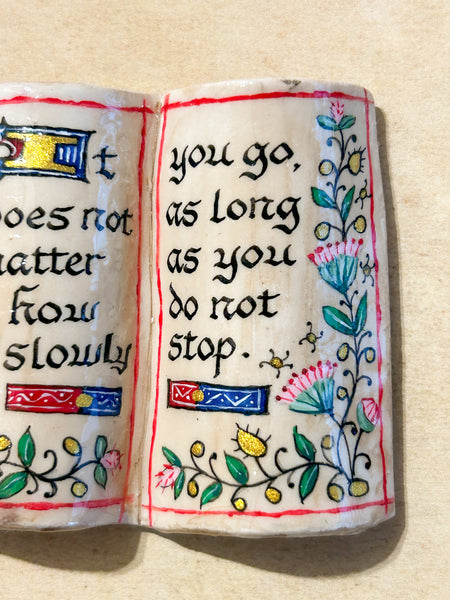 It
does not
matter
how
slowly
you go,
as long
as you
do not
stop.